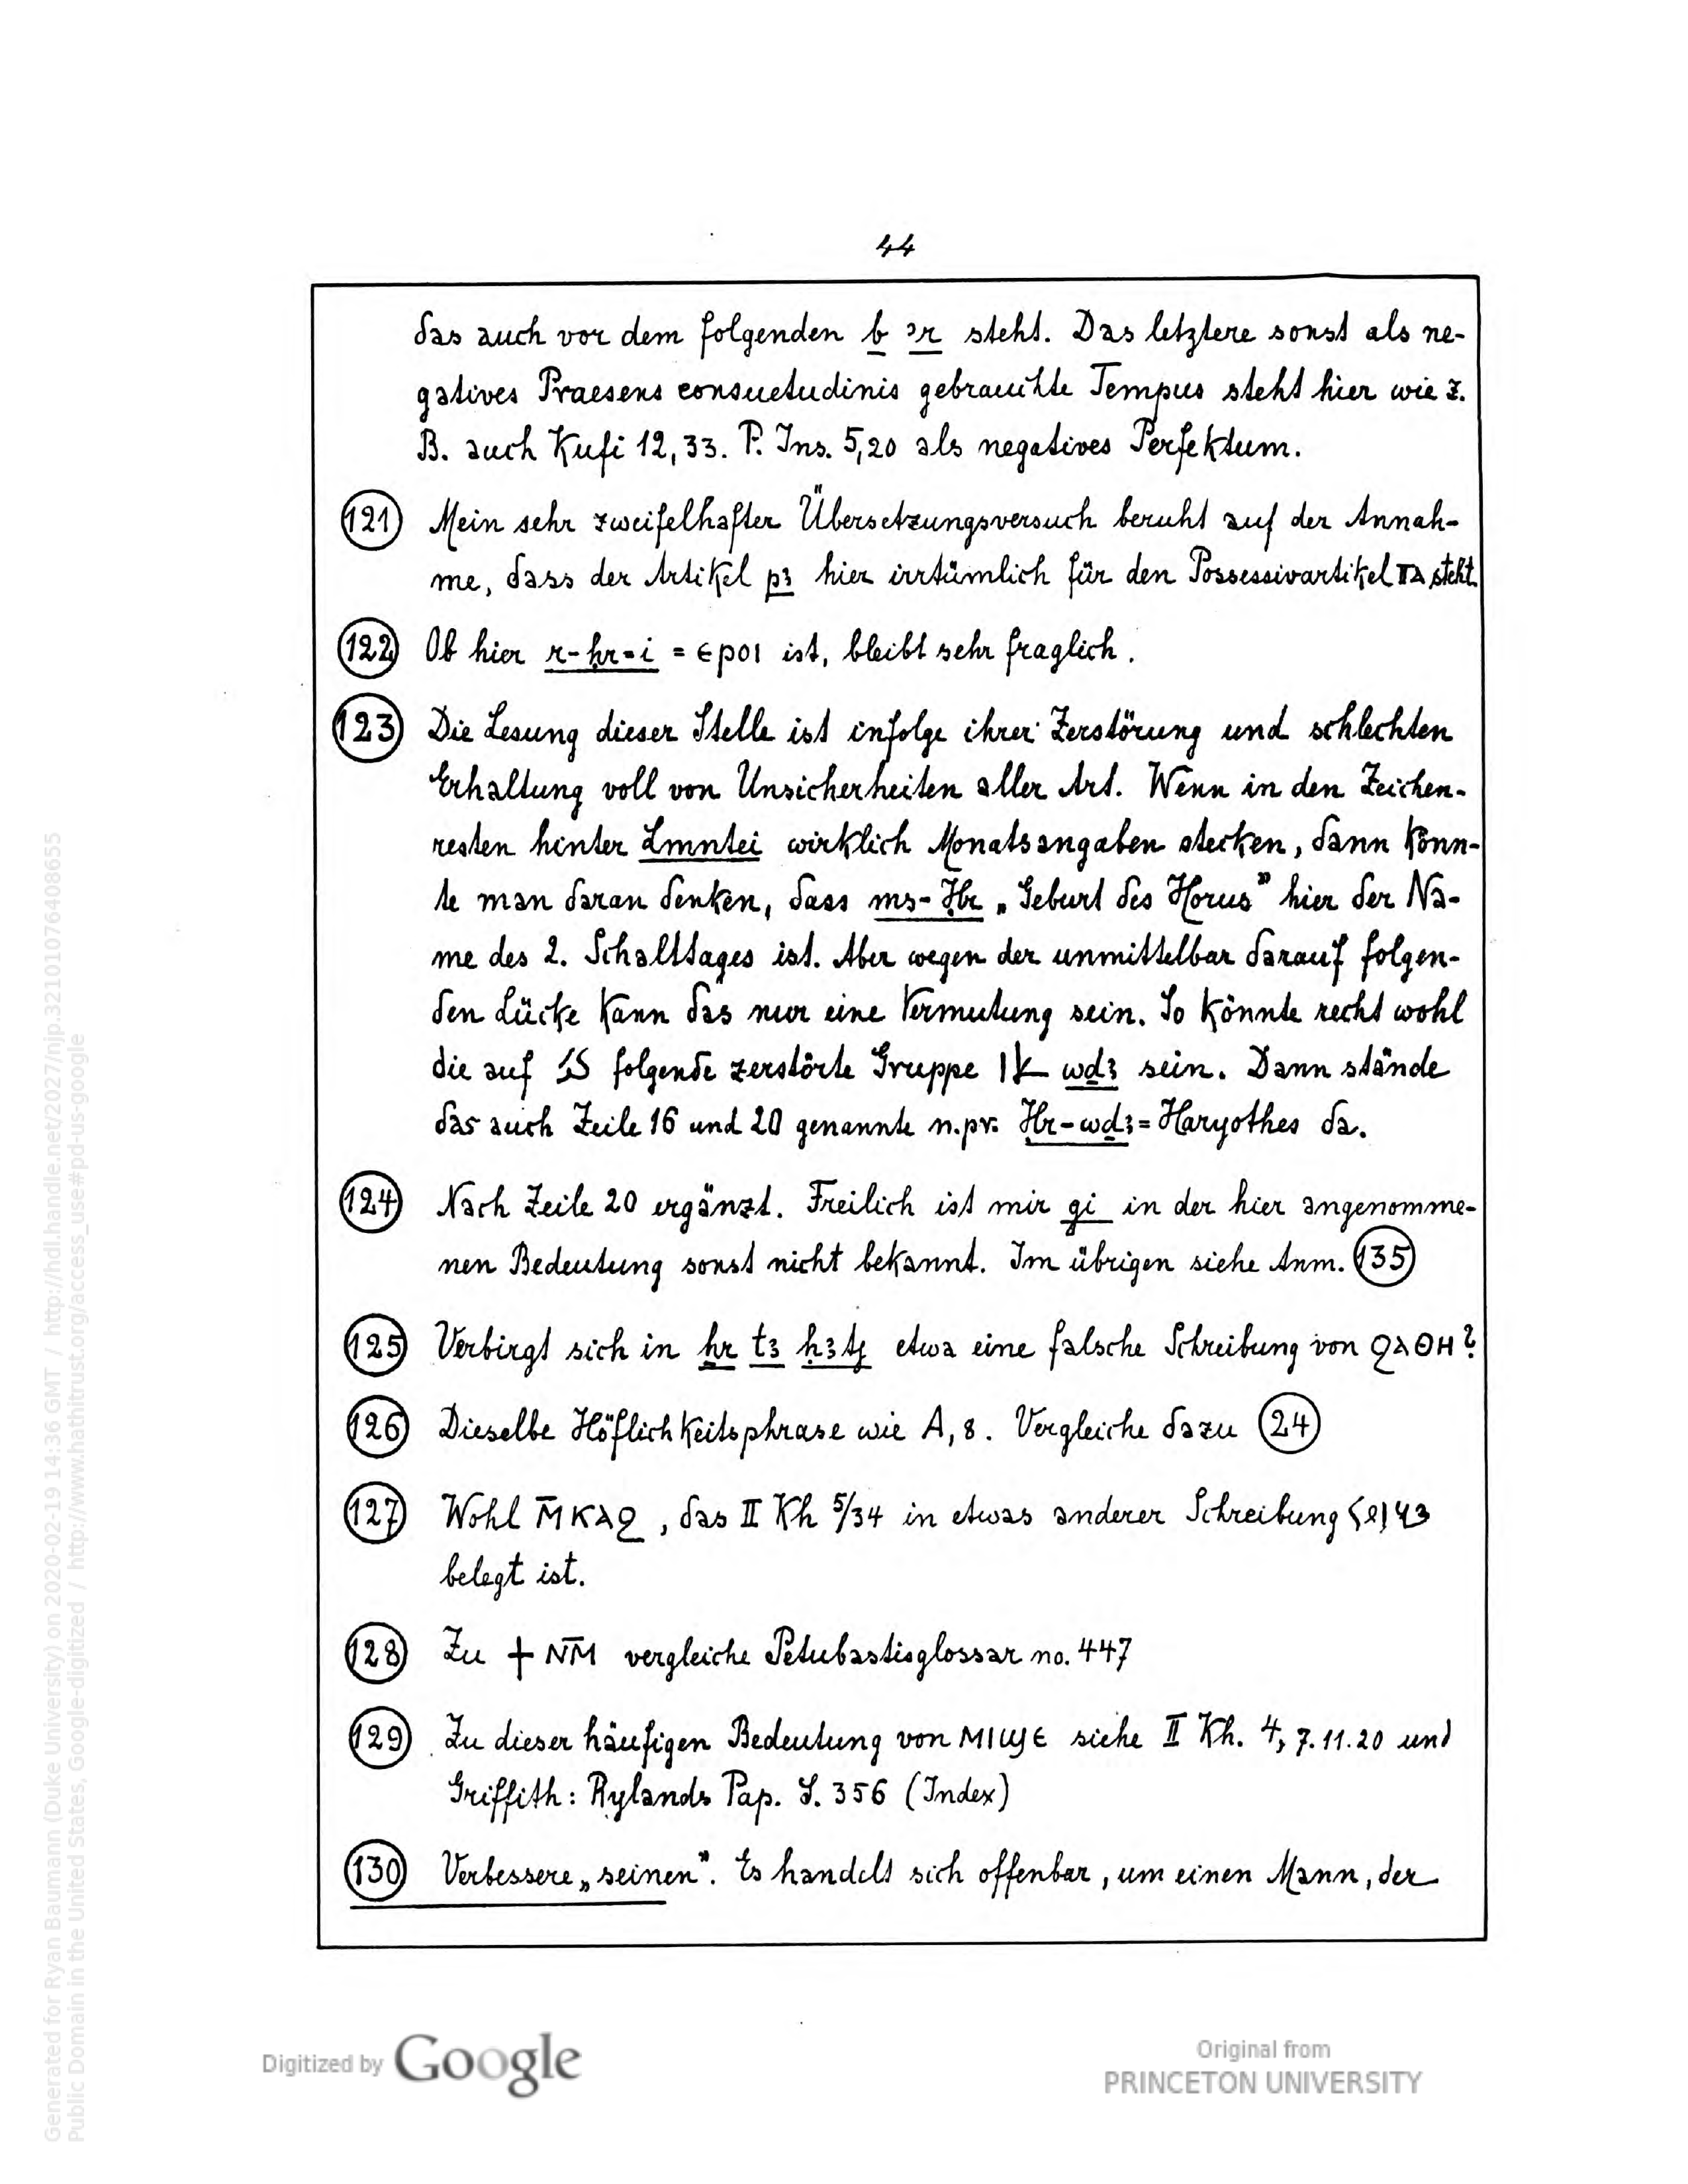 44
das auch vor dem folgenden b ꜣr steht. Das letztere sonst als ne-
gatives Praesens consuetudinis gebrauchte Tempus steht hier wie z.
B. auch Kufi 12,33. P. Ins. 5,20 als negatives Perfektum.
(121) Mein sehr zweifelhafter Übersetzungsversuch beruht auf der Annah-
me, dass der Artikel pꜣ hier irrtümlich für den Possessivartikel ⲡⲁ steht.
(122) Ob hier r-ḥr=i = ⲉⲣⲟⲓ ist, bleibt sehr fraglich.
(123) Die Lesung dieser Stelle ist infolge ihrer Zerstörung und schlechten
Erhaltung voll von Unsicherheiten aller Art. Wenn in den Zeichen-
resten hinter Lmntei wirklich Monatsangaben stecken, dann könn-
te man daran denken, dass ms-Ḥr „Geburt des Horus" hier der Na-
me des 2. Schalttages ist. Aber wegen der unmittelbar darauf folgen-
den Lücke kann das nur eine Vermutung sein. So könnte recht wohl
die auf folgende zerstörte Gruppe wḏꜣ sein. Dann stände
das auch Zeile 16 und 20 genannte n.pr. Ḥr-wḏꜣ = Haryothes da.
(124) Nach Zeile 20 ergänzt. Freilich ist mir gi in der hier angenomme-
nen Bedeutung sonst nicht bekannt. Im übrigen siehe Anm. (135)
(125) Verbirgt sich in ḥr tꜣ ḥꜣṱ etwa eine falsche Schreibung von ϩⲁⲑⲏ?
(126) Dieselbe Höflichkeitsphrase wie A, 8. Vergleiche dazu (24)
(127) Wohl ⲙ̄ⲕⲁϩ, das II Kh 5/34 in etwas anderer Schreibung
belegt ist.
(128) Zu ϯ ⲛⲙ̄ vergleiche Petubastisglossar no. 447
(129) Zu dieser häufigen Bedeutung von ⲙⲓϣⲉ siehe II Kh. 4, 7.11.20 und
Griffith: Rylands Pap. S. 356 (Index)
(130) Verbessere „seinen". Es handelt sich offenbar, um einen Mann, der
Generated for Ryan Baumann (Duke University) on 2020-02-19 14:36 GMT / http://hdl.handle.net/2027/njp.32101076408655
Public Domain in the United States, Google-digitized / http://www.hathitrust.org/access_use#pd-us-google
Digitized by Google
Original from
PRINCETON UNIVERSITY